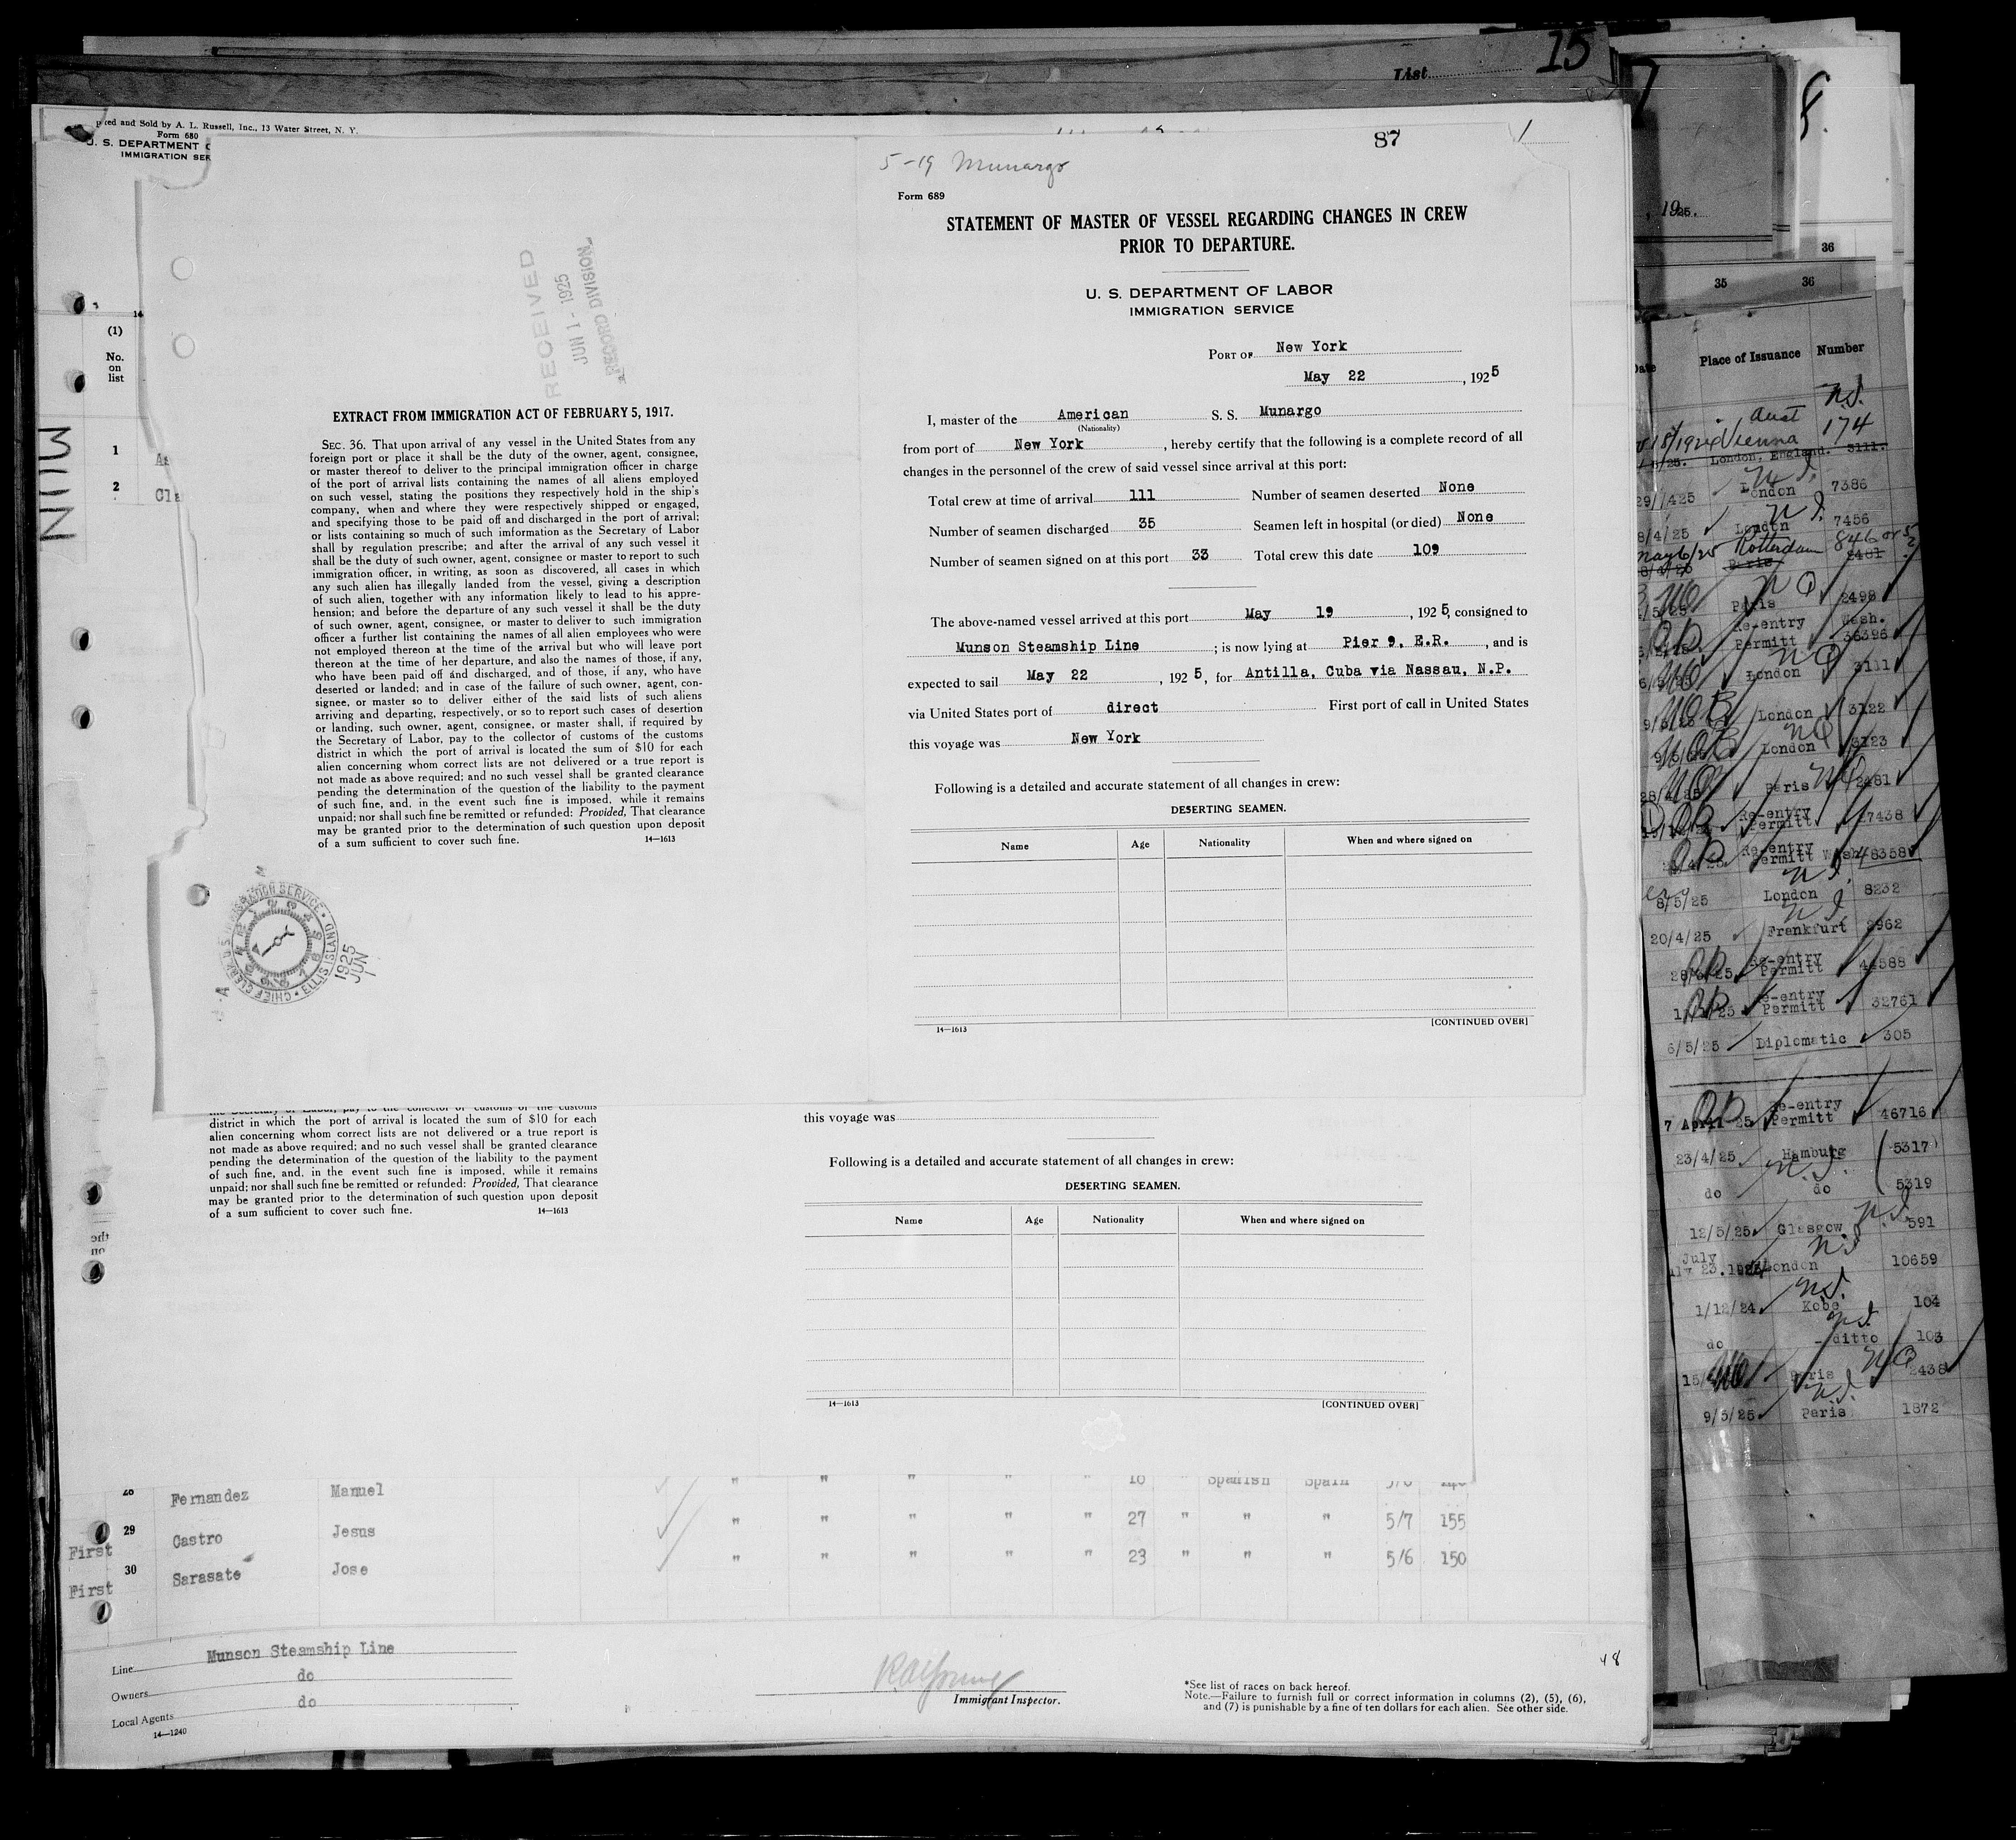 List 15
8.
7
, 1925.
36
35 36
Printed and Sold by A. L. Russell, Inc., 13 Water Street, N. Y.
Form 680
U. S. DEPARTMENT
IMMIGRATION SER
14
(1)
No.
on
list
MUN
1
2 Cla
87
1
5-19 Munargo
Form 689
STATEMENT OF MASTER OF VESSEL REGARDING CHANGES IN CREW
PRIOR TO DEPARTURE.
U. S. DEPARTMENT OF LABOR
IMMIGRATION SERVICE
PORT OF New York
May 22, 1925
I, master of the American S. S. Munargo
(Nationality)
from port of New York, hereby certify that the following is a complete record of all
changes in the personnel of the crew of said vessel since arrival at this port:
Total crew at time of arrival 111 Number of seamen deserted None
Number of seamen discharged 35 Seamen left in hospital (or died) None
Number of seamen signed on at this port 33 Total crew this date 109
The above-named vessel arrived at this port May 19, 1925, consigned to
Munson Steamship Line; is now lying at Pier 9, E.R., and is
expected to sail May 22, 1925, for Antilla, Cuba via Nassau, N.P.
via United States port of direct First port of call in United States
this voyage was New York
Following is a detailed and accurate statement of all changes in crew:
DESERTING SEAMEN.
Name Age Nationality When and where signed on
14—1613 [CONTINUED OVER]
RECEIVED
JUN 1 - 1925
RECORD DIVISION
EXTRACT FROM IMMIGRATION ACT OF FEBRUARY 5, 1917.
SEC. 36. That upon arrival of any vessel in the United States from any
foreign port or place it shall be the duty of the owner, agent, consignee,
or master thereof to deliver to the principal immigration officer in charge
of the port of arrival lists containing the names of all aliens employed
on such vessel, stating the positions they respectively hold in the ship's
company, when and where they were respectively shipped or engaged,
and specifying those to be paid off and discharged in the port of arrival;
or lists containing so much of such imformation as the Secretary of Labor
shall by regulation prescribe; and after the arrival of any such vessel it
shall be the duty of such owner, agent, consignee or master to report to such
immigration officer, in writing, as soon as discovered, all cases in which
any such alien has illegally landed from the vessel, giving a description
of such alien, together with any information likely to lead to his appre-
hension; and before the departure of any such vessel it shall be the duty
of such owner, agent, consignee, or master to deliver to such immigration
officer a further list containing the names of all alien employees who were
not employed thereon at the time of the arrival but who will leave port
thereon at the time of her departure, and also the names of those, if any,
who have been paid off and discharged, and of those, if any, who have
deserted or landed; and in case of the failure of such owner, agent, con-
signee, or master so to deliver either of the said lists of such aliens
arriving and departing, respectively, or so to report such cases of desertion
or landing, such owner, agent, consignee, or master shall, if required by
the Secretary of Labor, pay to the collector of customs of the customs
district in which the port of arrival is located the sum of $10 for each
alien concerning whom correct lists are not delivered or a true report is
not made as above required; and no such vessel shall be granted clearance
pending the determination of the question of the liability to the payment
of such fine, and, in the event such fine is imposed, while it remains
unpaid; nor shall such fine be remitted or refunded: Provided, That clearance
may be granted prior to the determination of such question upon deposit
of a sum sufficient to cover such fine. 14—1613
CHIEF CLERK, U.S. IMMIGRATION SERVICE • ELLIS ISLAND
1925
JUN
1
the Secretary of Labor, pay to the collector of customs of the customs
district in which the port of arrival is located the sum of $10 for each
alien concerning whom correct lists are not delivered or a true report is
not made as above required; and no such vessel shall be granted clearance
pending the determination of the question of the liability to the payment
of such fine, and, in the event such fine is imposed, while it remains
unpaid; nor shall such fine be remitted or refunded: Provided, That clearance
may be granted prior to the determination of such question upon deposit
of a sum sufficient to cover such fine. 14—1613
this voyage was
Following is a detailed and accurate statement of all changes in crew:
DESERTING SEAMEN.
Name Age Nationality When and where signed on
14—1613 [CONTINUED OVER]
28 Fernandez Manuel " " " " " 18 " Spanish Spain
29 Castro Jesus " " " " " 27 " " " 5/7 155
First
30 Sarasate Jose " " " " " 23 " " " 5/6 150
First
Line Munson Steamship Line
Owners do
Local Agents do
14—1240
Immigrant Inspector.
48
*See list of races on back hereof.
Note.—Failure to furnish full or correct information in columns (2), (5), (6),
and (7) is punishable by a fine of ten dollars for each alien. See other side.
Date Place of Issuance Number
Vienna 174
London, England. 3111.
London 7386
8/4/25 London 7456
May 6/25 Rotterdam
Paris 2498
Re-entry Permitt Wash. 36396
London 3111
London 3122
London 3123
Paris 2481
Re-entry Permitt 27438
Re-entry Permitt Wash 48358
8/5/25 London 8232
20/4/25 Frankfurt 2962
Re-entry Permitt 44588
Re-entry Permitt 32761
6/5/25 Diplomatic 305
7 April 25 Re-entry Permitt 46716
23/4/25 Hamburg 5317
do do 5319
12/5/25 Glasgow 591
July 23.1924 London 10659
1/12/24 Kobe 104
do ditto 103
Paris 2438
9/5/25 Paris 1872